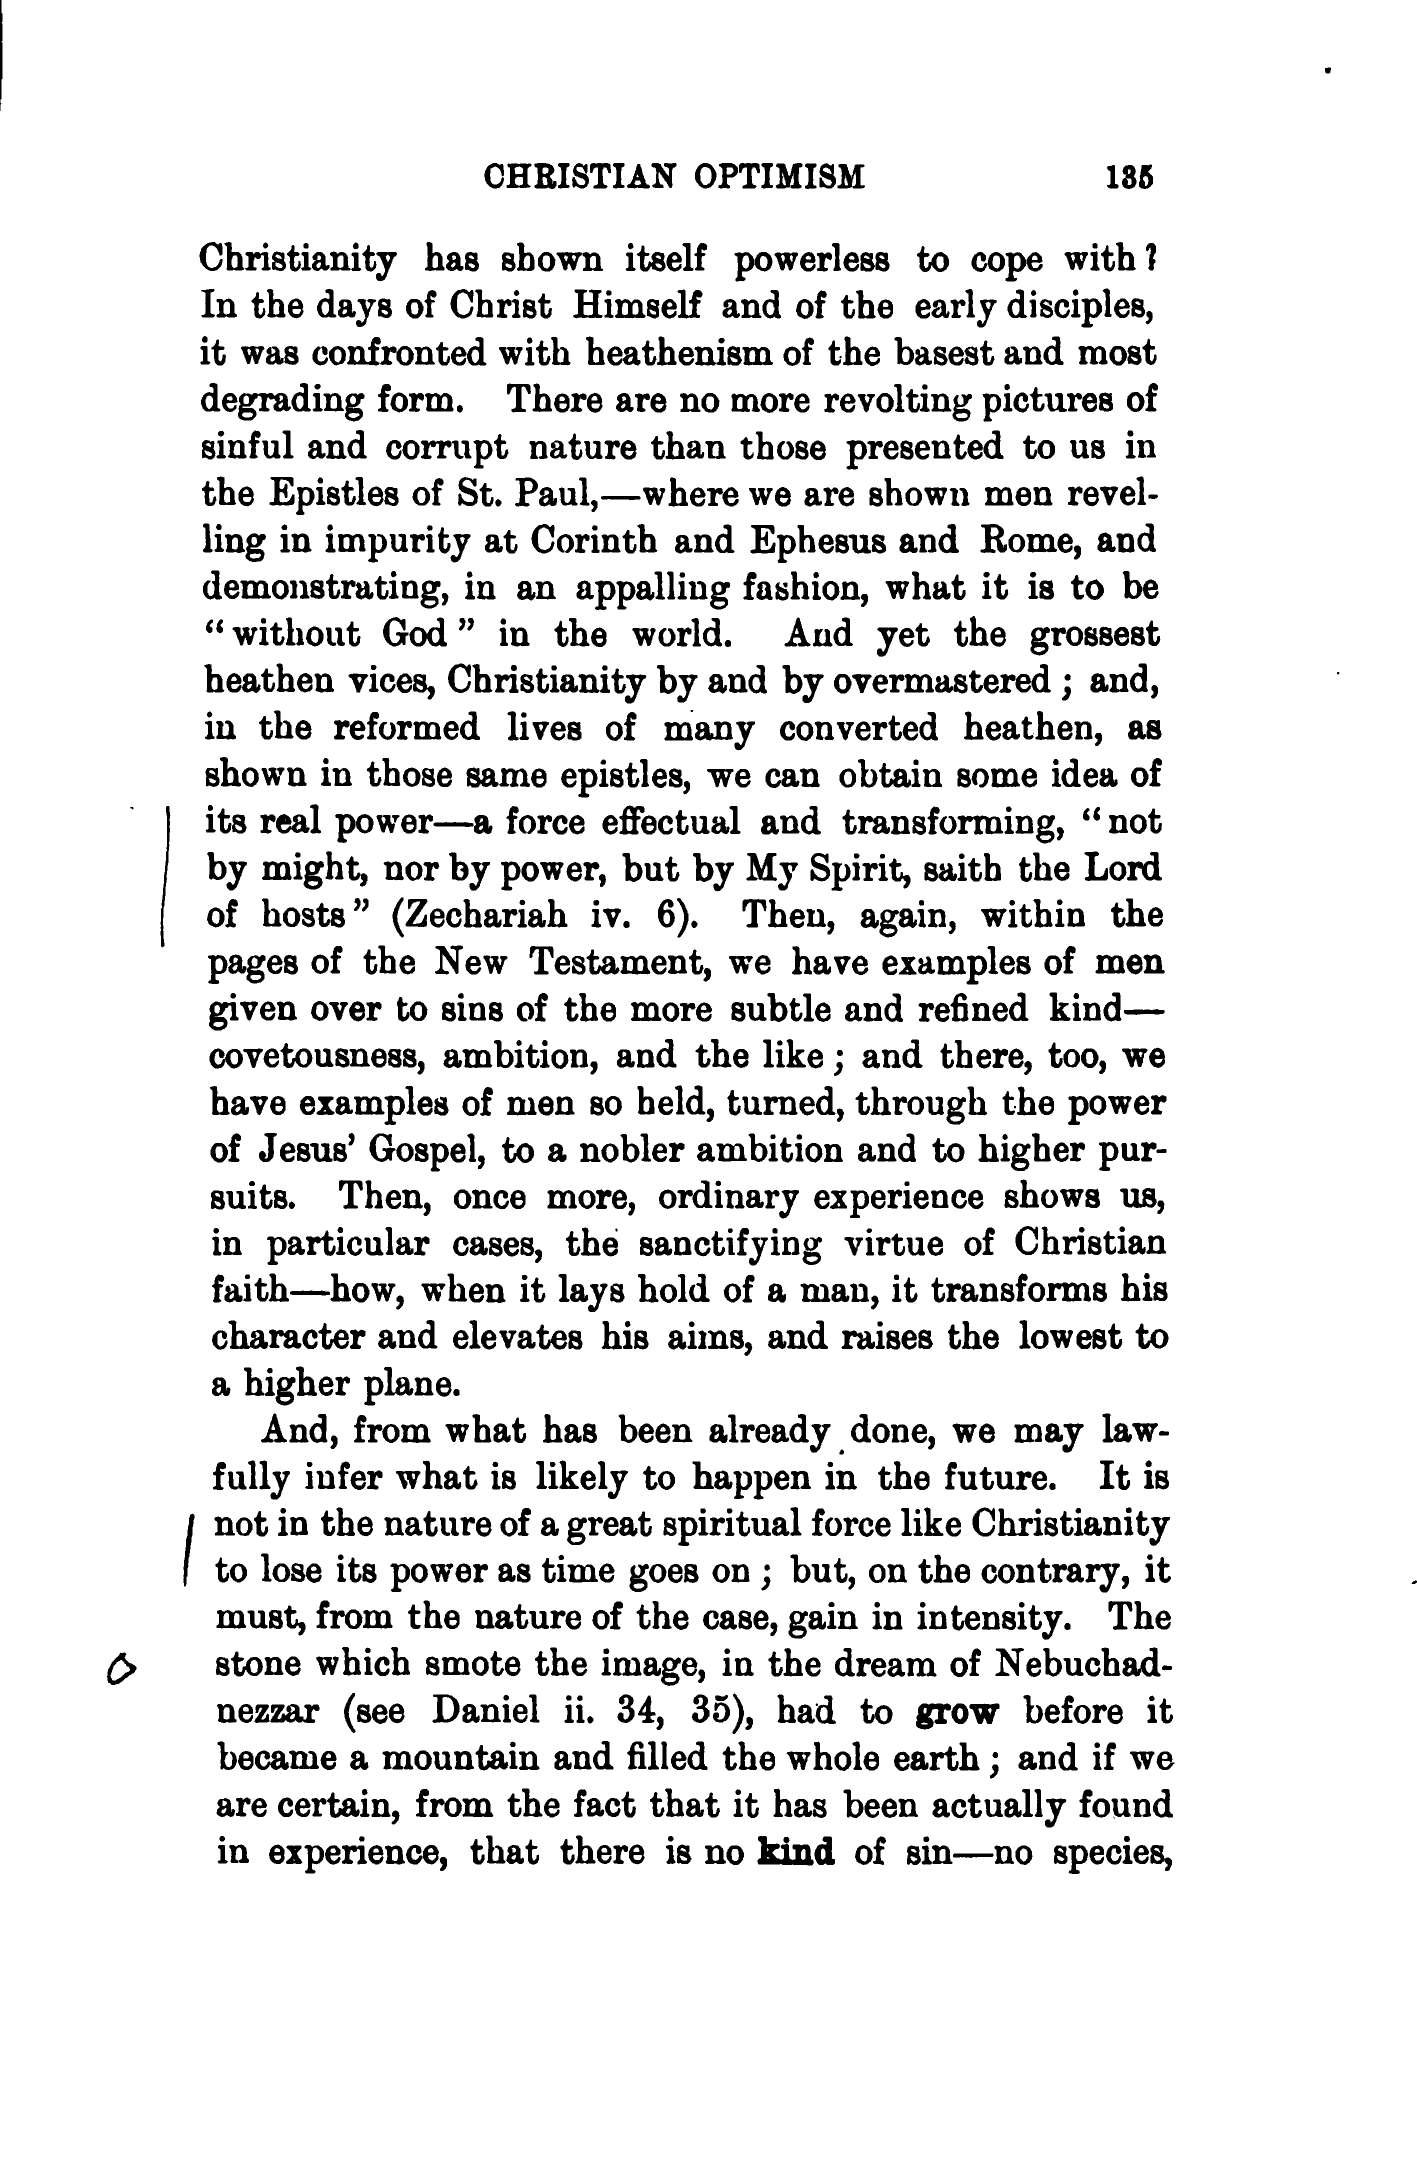 CHRISTIAN OPTIMISM 135
Christianity has shown itself powerless to cope with?
In the days of Christ Himself and of the early disciples,
it was confronted with heathenism of the basest and most
degrading form. There are no more revolting pictures of
sinful and corrupt nature than those presented to us in
the Epistles of St. Paul,—where we are shown men revel-
ling in impurity at Corinth and Ephesus and Rome, and
demonstrating, in an appalling fashion, what it is to be
“without God” in the world. And yet the grossest
heathen vices, Christianity by and by overmastered; and,
in the reformed lives of many converted heathen, as
shown in those same epistles, we can obtain some idea of
its real power—a force effectual and transforming, “not
by might, nor by power, but by My Spirit, saith the Lord
of hosts” (Zechariah iv. 6). Then, again, within the
pages of the New Testament, we have examples of men
given over to sins of the more subtle and refined kind—
covetousness, ambition, and the like; and there, too, we
have examples of men so held, turned, through the power
of Jesus’ Gospel, to a nobler ambition and to higher pur-
suits. Then, once more, ordinary experience shows us,
in particular cases, the sanctifying virtue of Christian
faith—how, when it lays hold of a man, it transforms his
character and elevates his aims, and raises the lowest to
a higher plane.
And, from what has been already done, we may law-
fully infer what is likely to happen in the future. It is
not in the nature of a great spiritual force like Christianity
to lose its power as time goes on; but, on the contrary, it
must, from the nature of the case, gain in intensity. The
stone which smote the image, in the dream of Nebuchad-
nezzar (see Daniel ii. 34, 35), had to grow before it
became a mountain and filled the whole earth; and if we
are certain, from the fact that it has been actually found
in experience, that there is no kind of sin—no species,